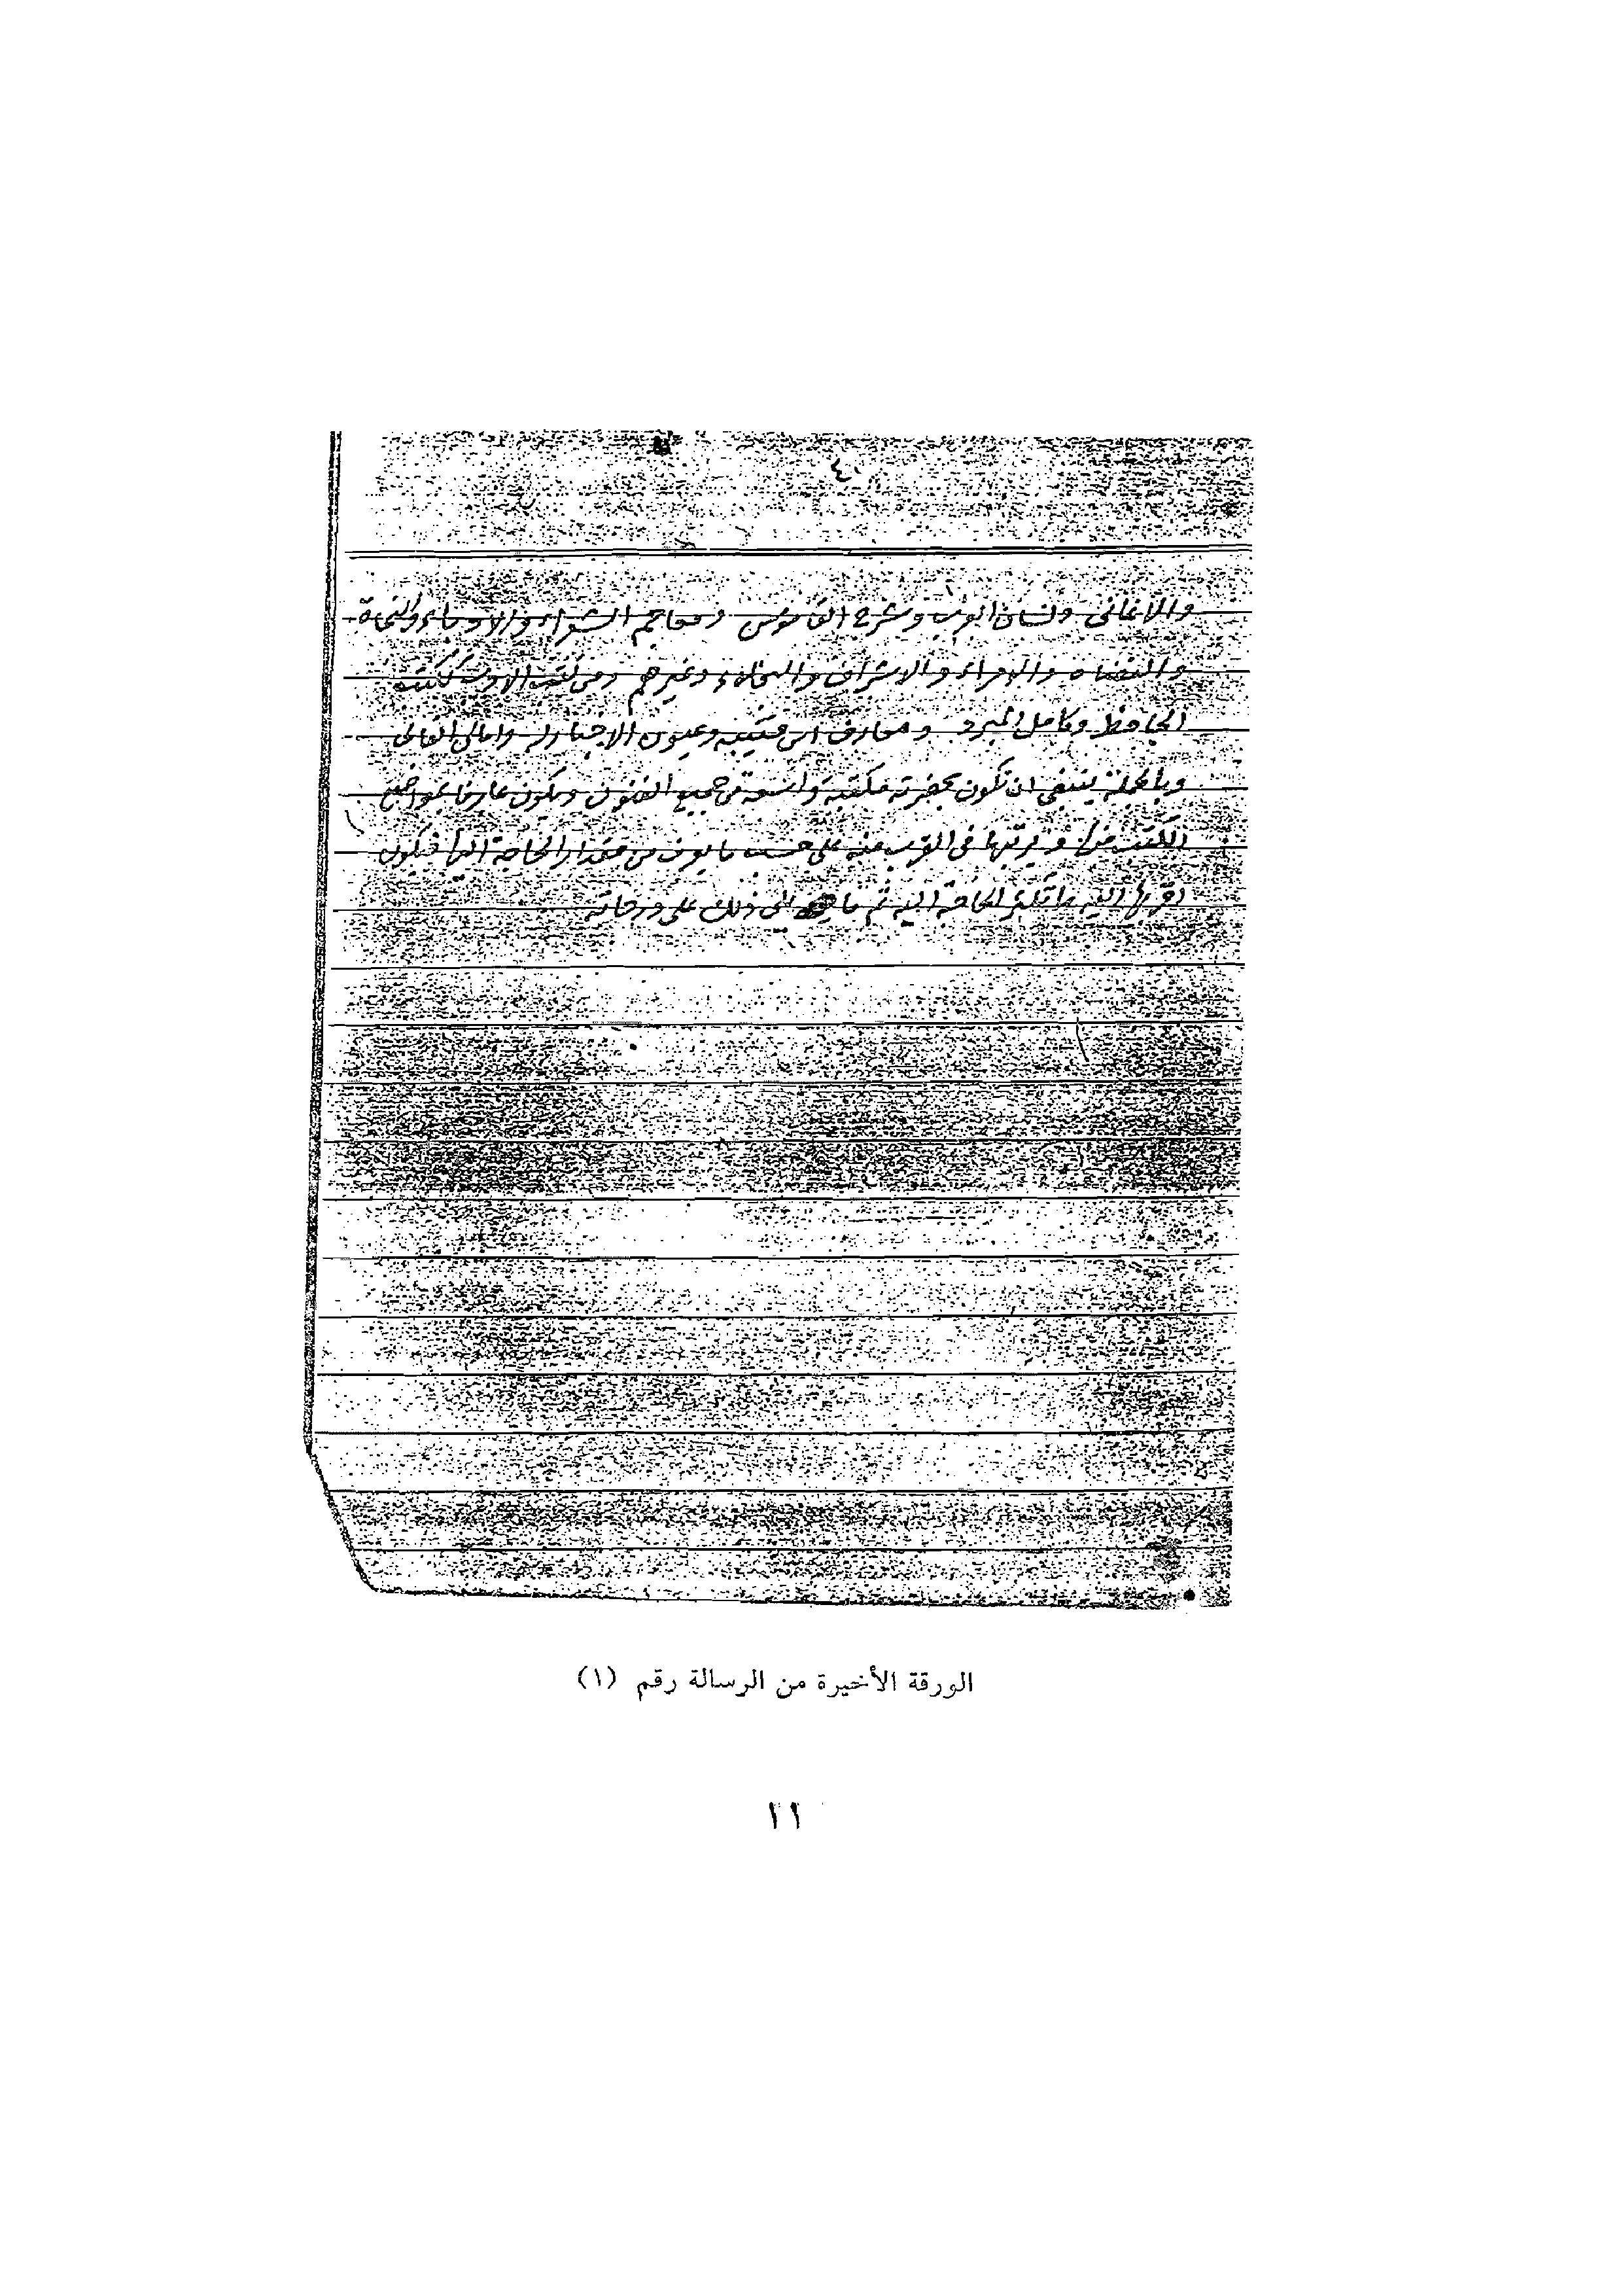 ٤٠
والاغانى ولسان العرب وشرح القاموس ومعاجم الشعراء والادباء والنحاة
والقضاه والامراء والاشراف والبخلاء وغيرهم ومن كتب الادب ككتب
الجاحظ وكامل المبرد ومعارف ابن قتيبه وعيون الاخبار له وامالى القالى
وبالجملة ينبغى ان تكون بحضرته مكتبة واسعة من جميع الفنون ويكون عارفا بمواضع
الكتب ويرتبها فى القرب منه على حسب ما يعرف من مقدار الحاجة اليها فيكون
اقربها اليه ما تكثر الحاجة اليه ثم ما يلى ذلك على درجاته
الورقة الأخيرة من الرسالة رقم (١)
١١